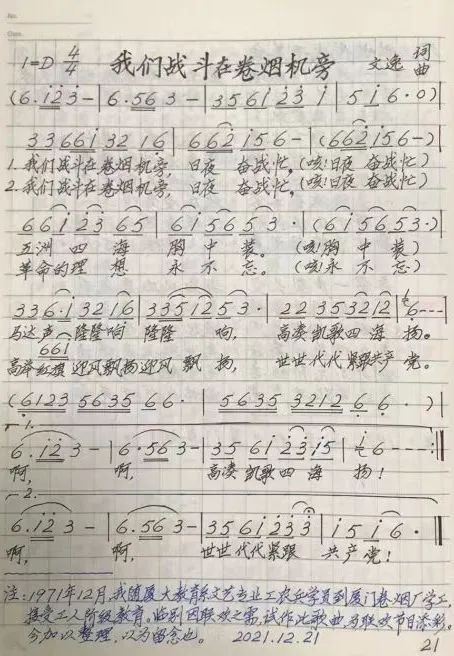 No.
Date.
1=D 4/4 我们战斗在卷烟机旁 文逸 词曲
(6.i̇2̇ 3̇ - | 6.56 3 - | 3 5 6 i 2̇3̇ i | 5 i 6 · 0)|
3 3 6 6 i 3 2 1 6 | 6 6 2̇ i 5 6 - | (6 6 2̇ i 5 6 -)|
1. 我们战斗在卷烟机旁, 日夜 奋战忙,(咳!日夜 奋战忙)
2. 我们战斗在卷烟机旁, 日夜 奋战忙,(咳!日夜 奋战忙)
6 6 i 2̇3̇ 6 5 | 6 i 5 6 5 3 · | (6 i 5 6 5 3 ·)|
五洲 四 海 胸 中 装。 (咳!胸 中 装)
革命的理 想 永 不 忘。 (咳!永 不 忘)
3 3 6 · i 3 2 1 6 | 3 3 5 1 2 5 3 · | 2 2 3 5 3 2 1 2 | 6 - - -
马达 声 隆隆响 隆隆 响, 高凑凯歌四 海 扬。
6 6 i
高举红旗 迎风飘扬迎风 飘 扬, 世世代代紧跟共产 党。
(6 1 2 3 5 6 3 5 6 6 · | 5 6 3 5 3 2 1 2 6 6 · )|
1.
6 . i 2̇ 3 - | 6 · 5 6 3 - | 3 5 6 i 2̇3̇ i 5 | i 6 - - :‖
啊, 啊, 高凑 凯歌四 海 扬!
2.
6 . i 2̇ 3 - | 6 . 5 6 3 - | 3 5 6 i 2̇ 3̇ 3̇ | i 5 i 6 · ‖
啊, 啊, 世世代代紧跟 共产党!
注:1971年12月,我随厦大教育系文艺专业工农兵学员到厦门卷烟厂学工,
接受工人阶级教育。临别因联欢之需,试作此歌曲为联欢节目添彩。
今加以整理,以为留念也。 2021.12.21
21